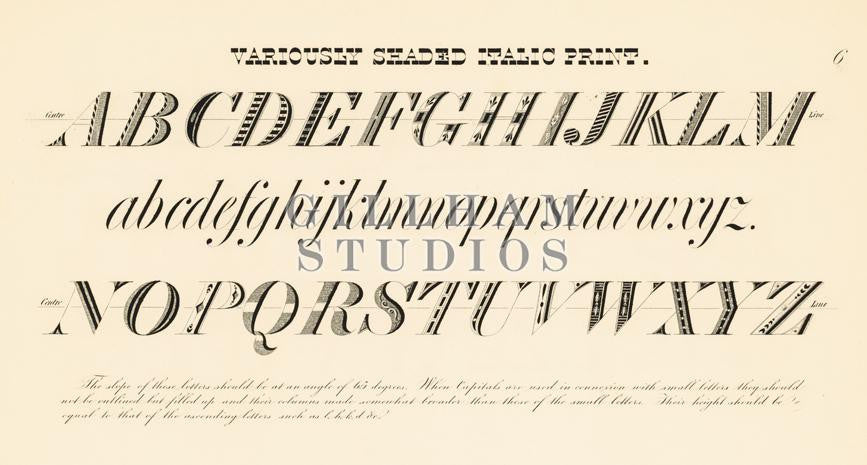 VARIOUSLY SHADED ITALIC PRINT.
6
Centre ABCDEFGHIJKLM Line
abcdefghijklmnopqrstuvwxyz.
GILLHAM
STUDIOS
Centre NOPQRSTUVWXYZ Line
The slope of these letters should be at an angle of 65 degrees. When Capitals are used in connexion with small letters they should
not be outlined but filled up and their columns made somewhat broader than those of the small letters. Their height should be
equal to that of the ascending letters such as l, h, k, d &c.